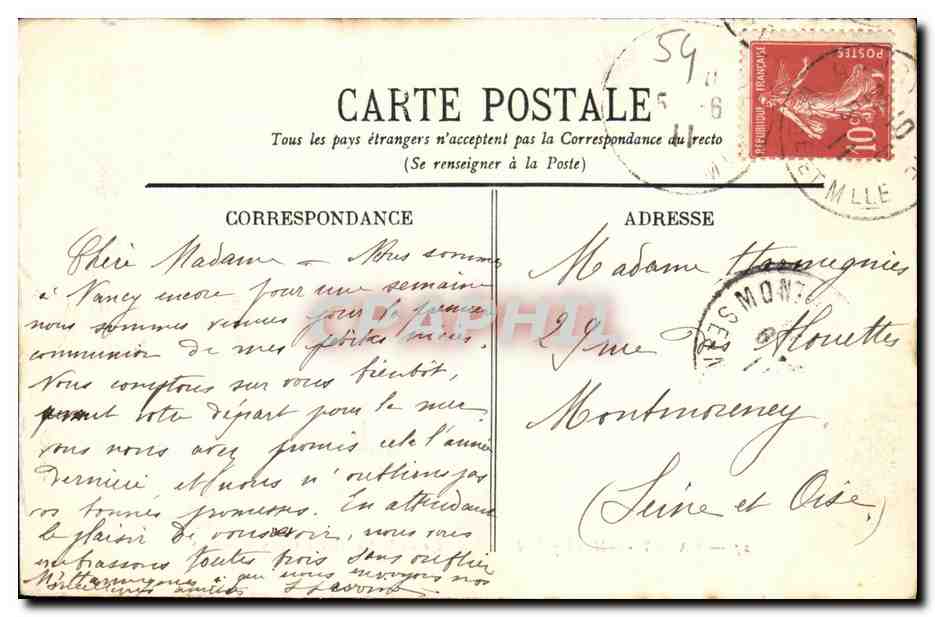 54
CARTE POSTALE
Tous les pays étrangers n'acceptent pas la Correspondance du recto
(Se renseigner à la Poste)
RÉPUBLIQUE FRANÇAISE
POSTES
10c
11
ET MLLE
CORRESPONDANCE
Chère Madame — Nous sommes
à Nancy encore pour une semaine
nous sommes venues pour la première
communion de mes petites nièces.
Nous comptons sur vous bientôt,
avant votre départ pour la mer
vous nous avez promis cela l'année
dernière, et nous n'oublions pas
vos bonnes promesses. En attendant
le plaisir de vous voir, nous vous
embrassons toutes trois sans oublier
Mr Harmegnies à qui nous envoyons nos
meilleures amitiés
CPAPHIL
ADRESSE
Madame Harmegnies
29 rue des Alouettes
Montmorency
(Seine et Oise)